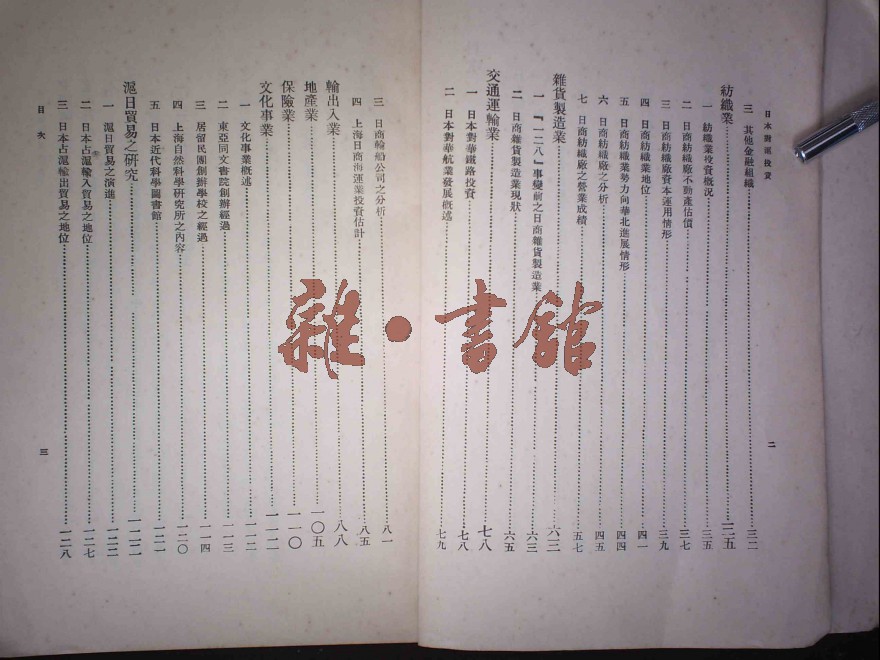 日本對滬投資
三　其他金融組織……三二
紡織業……三五
一　紡織業投資概況……三五
二　日商紡織廠不動產估價……三七
三　日商紡織廠資本運用情形……三九
四　日商紡織業地位……四一
五　日商紡織業勢力向華北進展情形……四四
六　日商紡織廠之分析……四五
七　日商紡織廠之營業成績……五七
雜貨製造業……六三
一　『一二八』事變前之日商雜貨製造業……六三
二　日商雜貨製造業現狀……六五
交通運輸業……七八
一　日本對華鐵路投資……七八
二　日本對華航業發展概述……七九
二
三　日商輪船公司之分析……八一
四　上海日商海運業投資估計……八五
輸出入業……八八
地產業……一〇五
保險業……一一〇
文化事業……一一二
一　文化事業概述……一一二
二　東亞同文書院創辦經過……一一三
三　居留民團創辦學校之經過……一一四
四　上海自然科學研究所之內容……一二〇
五　日本近代科學圖書館……一二一
滬日貿易之研究……一二二
一　滬日貿易之演進……一二二
二　日本占滬輸入貿易之地位……一二七
三　日本占滬輸出貿易之地位……一二八
目次
三
雜·書館